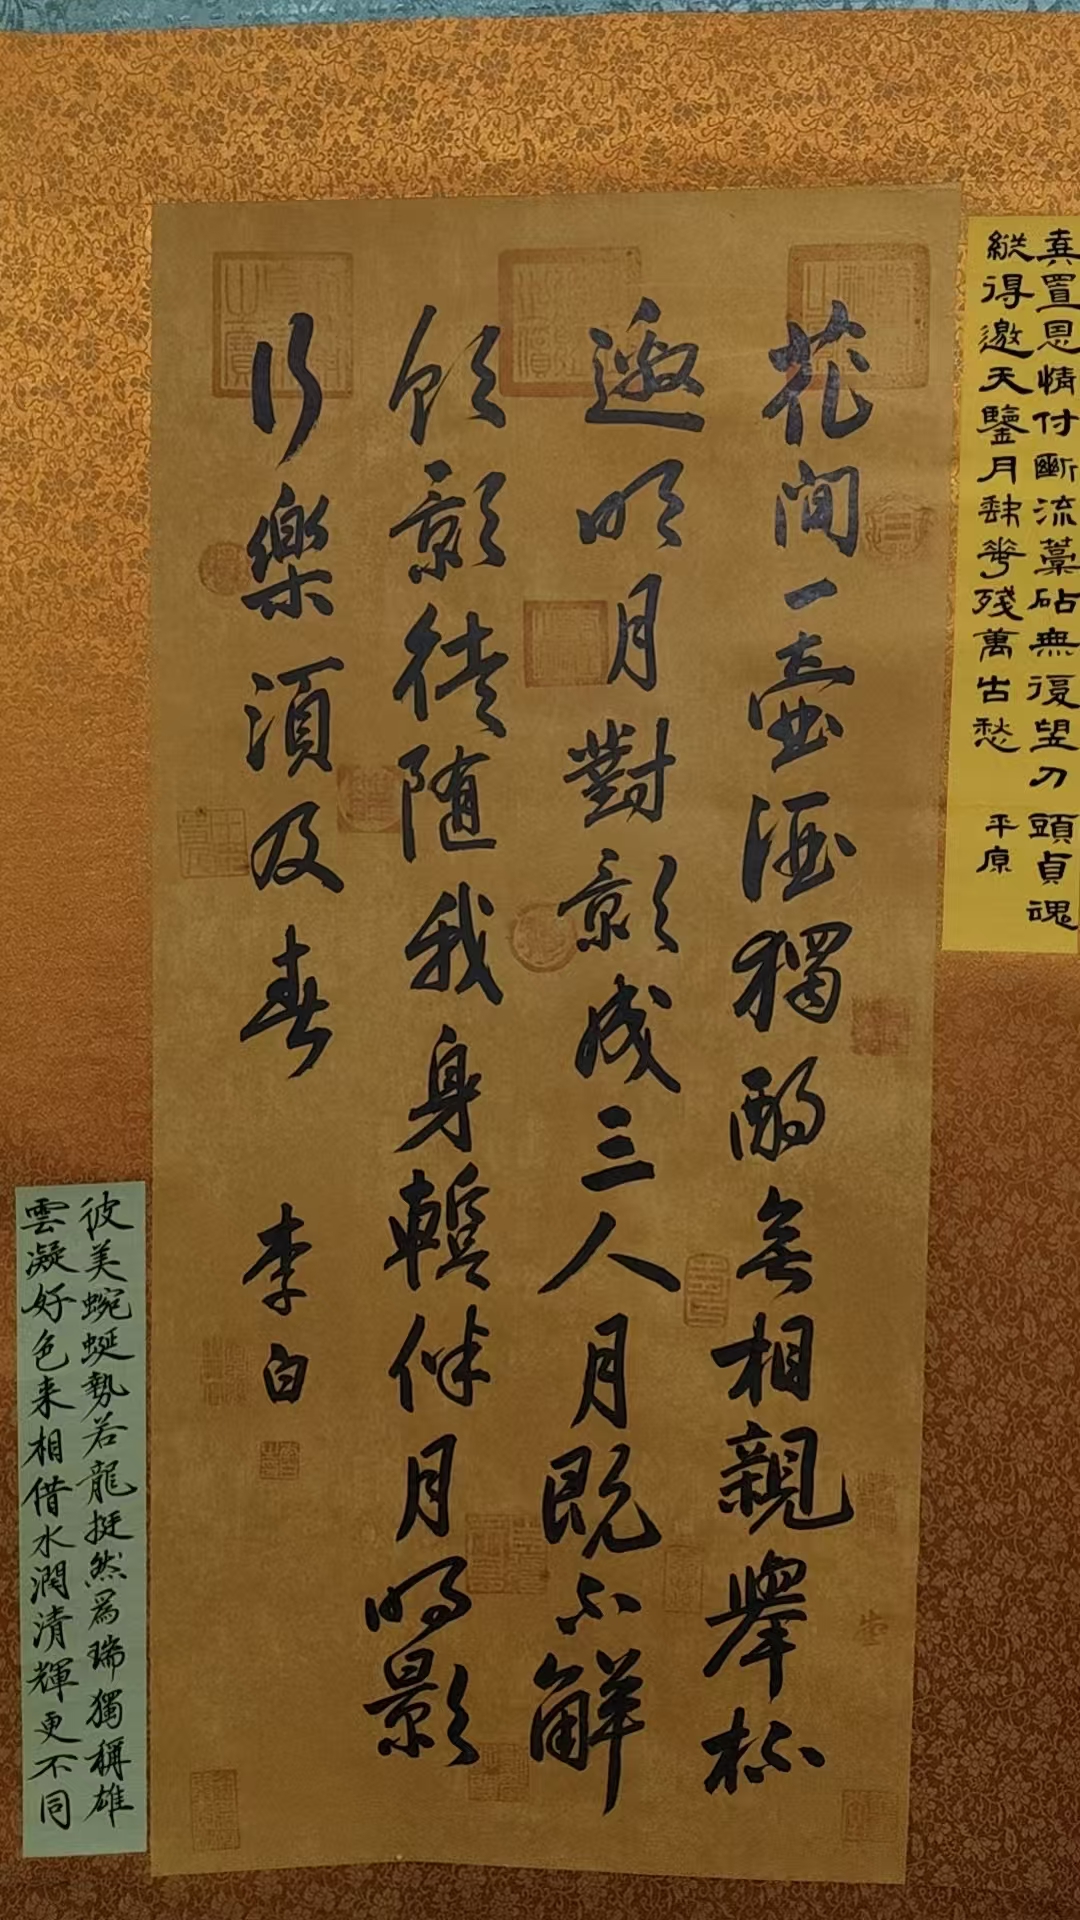 棄置恩情付斷流藁砧無復望刀頭貞魂
縱得邀天鑒月缺華殘萬古愁 平原
花間一壺酒獨酌無相親舉杯
邀明月對影成三人月既不解
飲影徒隨我身暫伴月將影
行樂須及春 李白
彼美蜿蜒勢若龍挺然爲瑞獨稱雄
雲凝好色来相借水潤清輝更不同